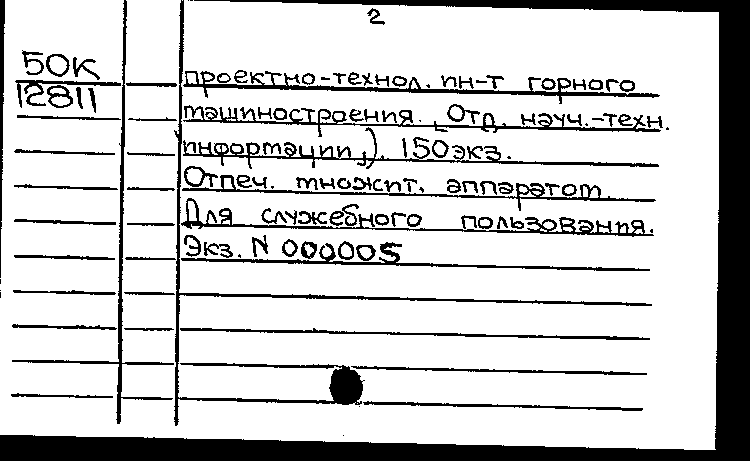 2
50К
12811
проектно-технол. ин-т горного
машиностроения. Отд. науч.-техн.
информации,). 150экз.
Отпеч. множит. аппаратом.
Для служебного пользования.
Экз. N 000005